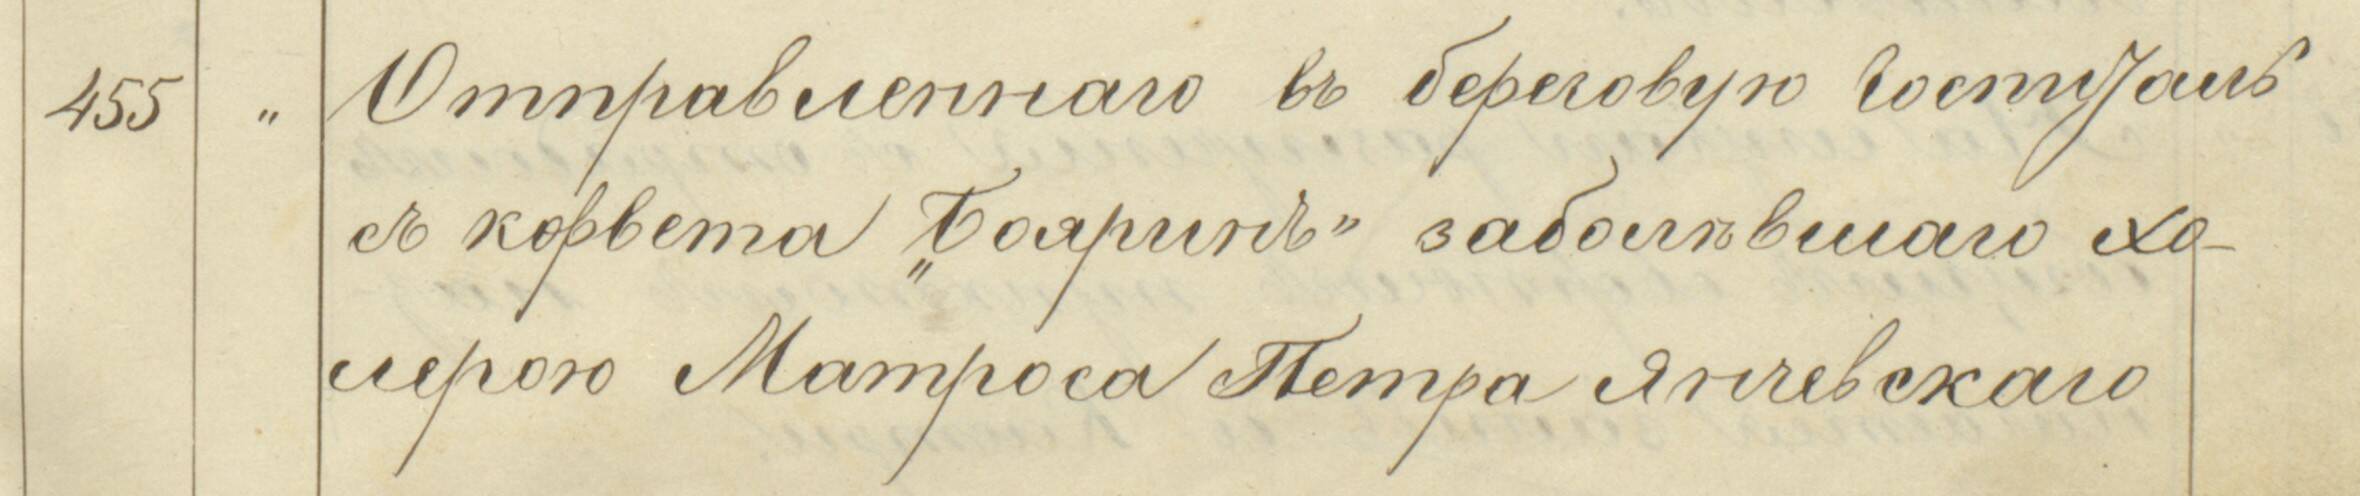 455 " Отправленнаго въ береговую госпиталь
съ корвета „Бояринъ" заболѣвшаго хо-
лерою Матроса Петра Янчевскаго